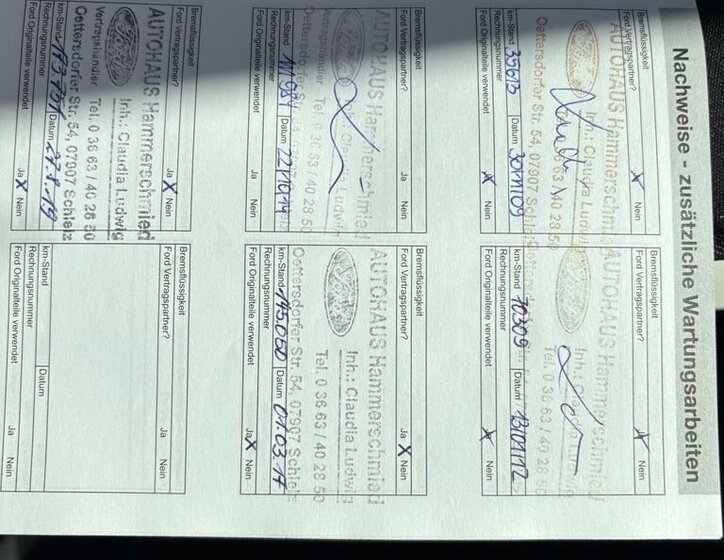 Nachweise - zusätzliche Wartungsarbeiten
Bremsflüssigkeit
Ford Vertragspartner? Ja X Nein
AUTOHAUS Hammerschmied
Inh.: Claudia Ludwig
Tel. 0 36 63 / 40 28 50
Oettersdorfer Str. 54, 07907 Schleiz
km-Stand 35613 Datum 30/11/09
Rechnungsnummer
Ford Originalteile verwendet Ja X Nein
Bremsflüssigkeit
Ford Vertragspartner? Ja X Nein
AUTOHAUS Hammerschmied
Tel. 0 36 63 / 40 28 50
km-Stand 70309 Datum 13/01/12
Rechnungsnummer
Ford Originalteile verwendet Ja X Nein
Bremsflüssigkeit
Ford Vertragspartner? Ja Nein
AUTOHAUS Hammerschmied
Inh.: Claudia Ludwig
Vertragshändler Tel. 0 36 63 / 40 28 50
Oettersdorfer Str. 54, 07907
km-Stand 111 984 Datum 22/10/14
Rechnungsnummer
Ford Originalteile verwendet Ja Nein
Bremsflüssigkeit
Ford Vertragspartner? Ja X Nein
AUTOHAUS Hammerschmied
Inh.: Claudia Ludwig
Tel. 0 36 63 / 40 28 50
Oettersdorfer Str. 54, 07907 Schleiz
km-Stand 145060 Datum 01.03.17
Rechnungsnummer
Ford Originalteile verwendet Ja X Nein
Bremsflüssigkeit
Ford Vertragspartner? Ja X Nein
AUTOHAUS Hammerschmied
Inh.: Claudia Ludwig
Vertragshändler Tel. 0 36 63 / 40 28 50
Oettersdorfer Str. 54, 07907 Schleiz
km-Stand Datum
Rechnungsnummer
Ford Originalteile verwendet Ja X Nein
Bremsflüssigkeit
Ford Vertragspartner? Ja Nein
km-Stand Datum
Rechnungsnummer
Ford Originalteile verwendet Ja Nein